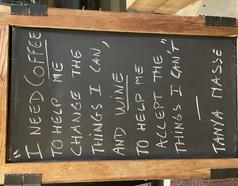 "I NEED COFFEE
TO HELP ME
CHANGE THE
THINGS I CAN,
AND WINE
TO HELP ME
ACCEPT THE
THINGS I CAN'T"
—
TANYA MASSE